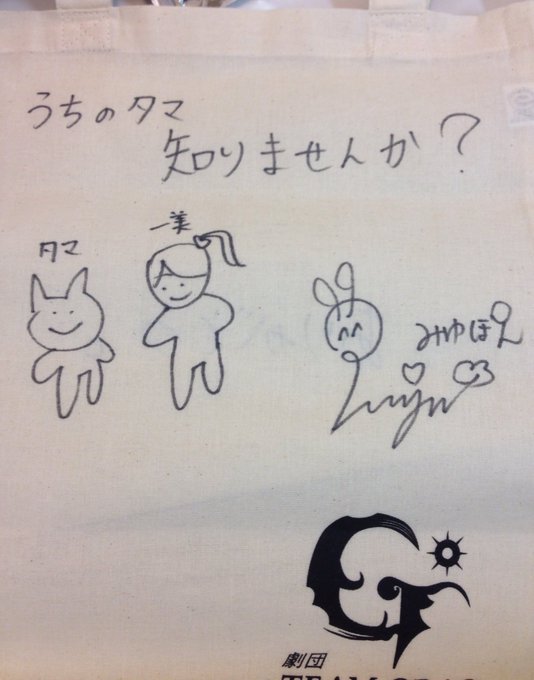 うちのタマ
知りませんか?
タマ
一美
みゆぽん
劇団